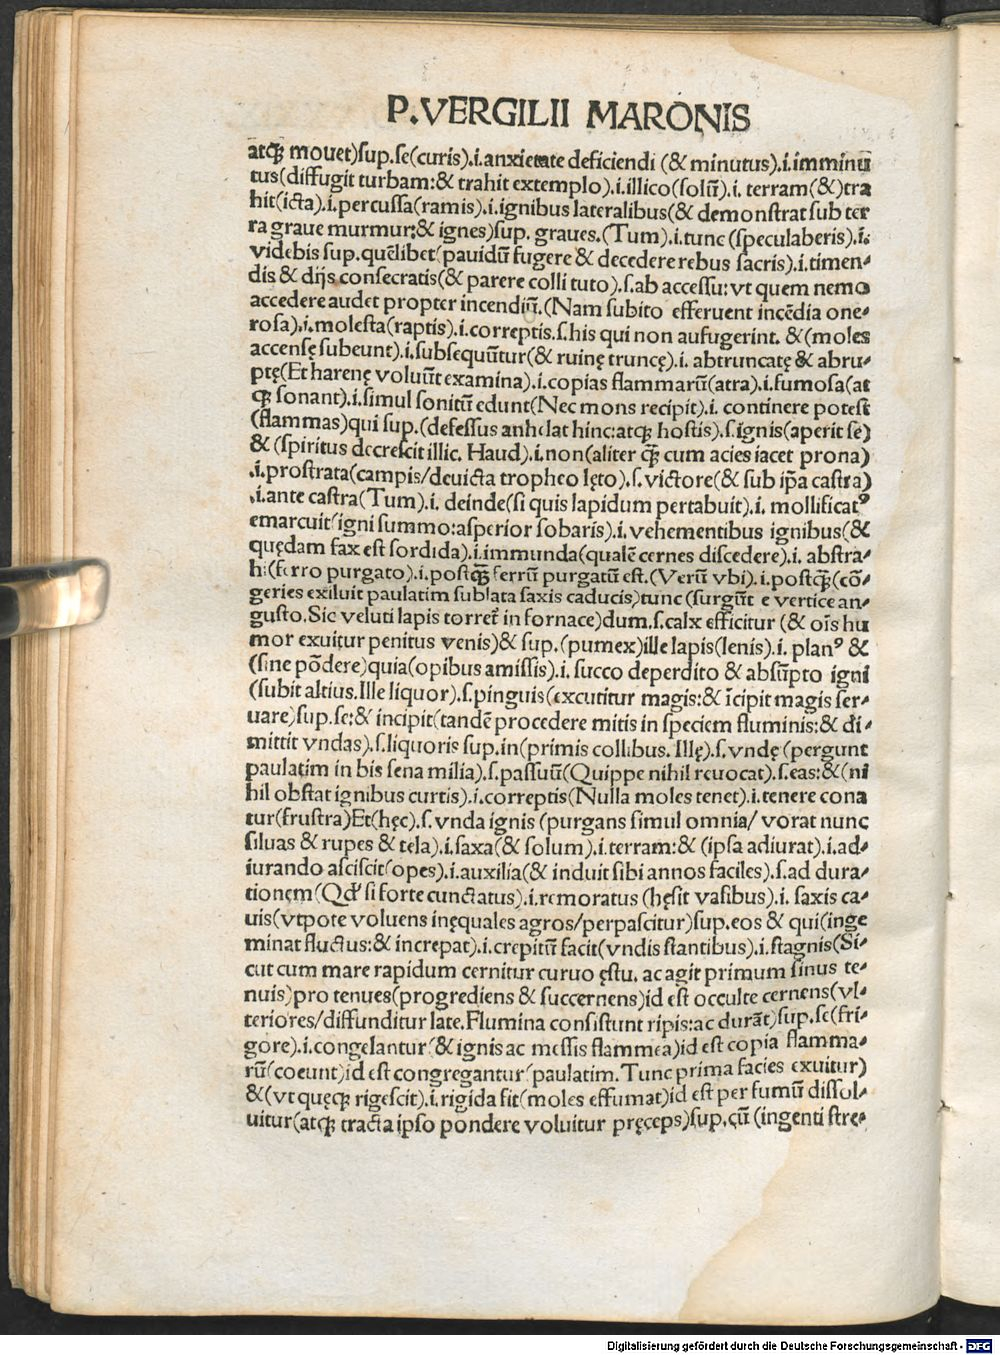 P.VERGILII MARONIS
atqꝫ mouet)sup.se(curis).i.anxietate deficiendi (& minutus).i.imminu
tus(diffugit turbam:& trahit extemplo).i.illico(solū).i. terram(&)tra
hit(icta).i.percussa(ramis).i.ignibus lateralibus(& demonstrat sub ter
ra graue murmur:& ignes)sup. graues.(Tum).i.tunc (speculaberis).i.
videbis sup.quēlibet(pauidū fugere & decedere rebus sacris).i.timen-
dis & dijs consecratis(& parere colli tuto).s.ab accessu:vt quem nemo
accedere audet propter incendiū.(Nam subito efferuent incēdia one-
rosa).i.molesta(raptis).i.correptis.s.his qui non aufugerint. &(moles
accensę subeunt).i.subsequūtur(& ruinę truncę).i. abtruncatę & abru-
ptę(Et harenę voluūt examina).i.copias flammarū(atra).i.fumosa(at
qꝫ sonant).i.simul sonitū edunt(Nec mons recipit).i. continere potest
(flammas)qui sup.(defessus anhelat hinc:atqꝫ hostis).s.ignis(aperit se)
& (spiritus decrescit illic. Haud).i.non(aliter qꝫ̄ cum acies iacet prona)
.i.prostrata(campis/deuicta tropheo lęto).s.victore(& sub ip̄a castra)
.i.ante castra(Tum).i. deinde(si quis lapidum pertabuit).i. mollificatꝰ
emarcuit(igni summo:asperior sobaris).i.vehementibus ignibus(&
quędam fax est sordida).i.immunda(qualē cernes discedere).i. abstra-
hi(ferro purgato).i.postqꝫ̄ ferrū purgatū est.(Verū vbi).i.postqꝫ̄(cō-
geries exiluit paulatim sublata saxis caducis)tunc(surgūt e vertice an-
gusto.Sic veluti lapis torret̄ in fornace)dum.s.calx efficitur (& oīs hu
mor exuitur penitus venis)& sup.(pumex)ille lapis(lenis).i. planꝰ &
(sine pōdere)quia(opibus amissis).i. succo deperdito & absūpto igni
(subit altius.Ille liquor).s.pinguis(excutitur magis:& īcipit magis ser-
uare)sup.se:& incipit(tandē procedere mitis in speciem fluminis:& di-
mittit vndas).s.liquoris sup.in(primis collibus. Illę).s.vndę(pergunt
paulatim in bis sena milia).s.passuū(Quippe nihil reuocat).s.eas:&(ni
hil obstat ignibus curtis).i.correptis(Nulla moles tenet).i.tenere cona
tur(frustra)Et(hęc).s.vnda ignis (purgans simul omnia/ vorat nunc
siluas & rupes & tela).i.saxa(& solum).i.terram:& (ipsa adiurat).i.ad-
iurando asciscit(opes).i.auxilia(& induit sibi annos faciles).s.ad dura-
tionem(Qd̓ si forte cunctatus).i.remoratus (hęsit vasibus).i. saxis ca-
uis(vtpote voluens inęquales agros/perpascitur)sup.eos & qui(inge
minat fluctus:& increpat).i.crepitū facit(vndis stantibus).i.stagnis(Si-
cut cum mare rapidum cernitur curuo ęstu, ac agit primum sinus te-
nuis)pro tenues(progrediens & succernens)id est occulte cernens(vl-
teriores/diffunditur late.Flumina consistunt ripis:ac durāt)sup.se(fri-
gore).i.congelantur(& ignis ac messis flammea)id est copia flamma-
rū(coeunt)id est congregantur(paulatim.Tunc prima facies exuitur)
&(vt quęcqꝫ rigescit).i.rigida fit(moles effumat)id est per fumū dissol-
uitur(atqꝫ tracta ipso pondere voluitur pręceps)sup.cū (ingenti strę-
Digitalisierung gefördert durch die Deutsche Forschungsgemeinschaft - DFG